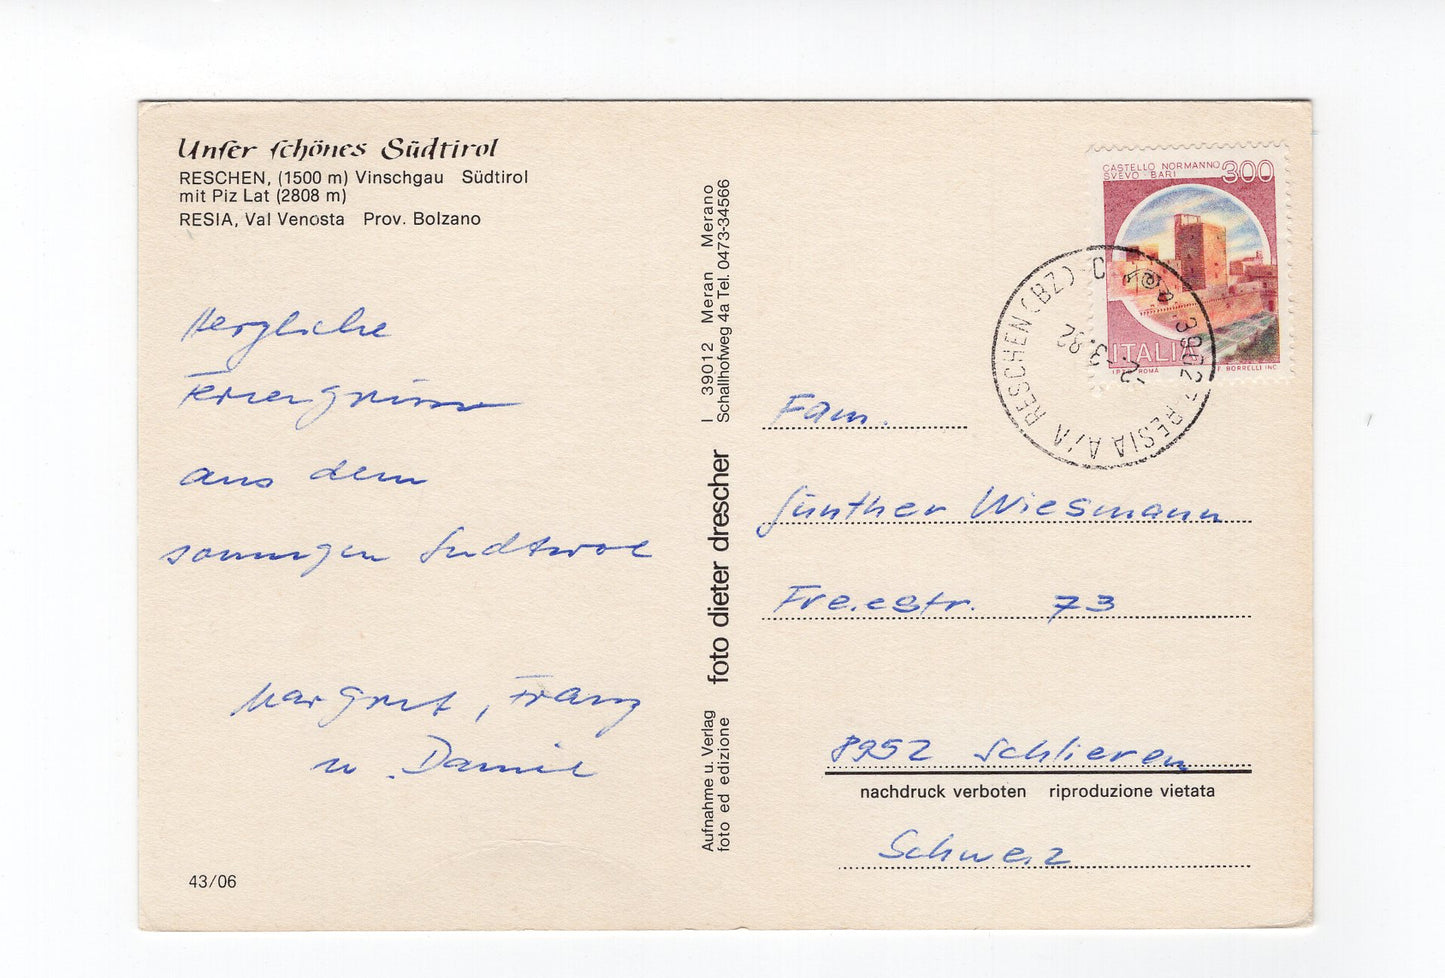 Unser schönes Südtirol
RESCHEN, (1500 m) Vinschgau Südtirol
mit Piz Lat (2808 m)
RESIA, Val Venosta Prov. Bolzano
Herzliche
Feriengrüsse
aus dem
sonnigen Südtirol
Margret, Franz
u. Daniel
43/06
I 39012 Meran Merano
Schallhofweg 4a Tel. 0473-34566
foto dieter drescher
Aufnahme u. Verlag
foto ed edizione
CASTELLO NORMANNO
SVEVO BARI
300
ITALIA
I.P.Z.S. ROMA F. BORRELLI INC.
RESIA A/A RESCHEN (BZ)
Fam.
Günther Wiesmann
Freiestr. 73
8952 Schlieren
nachdruck verboten riproduzione vietata
Schweiz